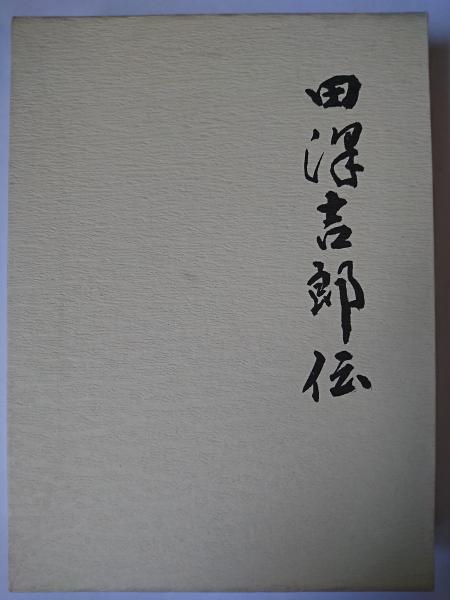 田澤吉郎伝